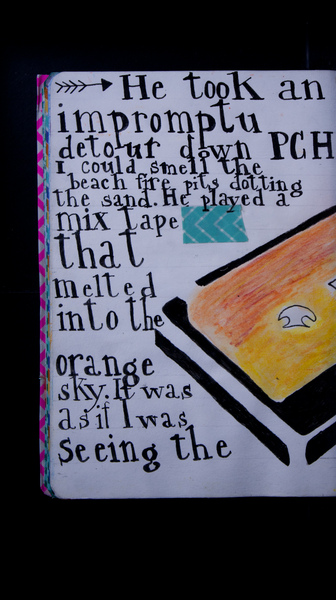 He took an
impromptu
detour down PCH
I could smell the
beach fire pits dotting
the sand. He played a
mix tape
that
melted
into the
orange
sky. It was
as if I was
seeing the